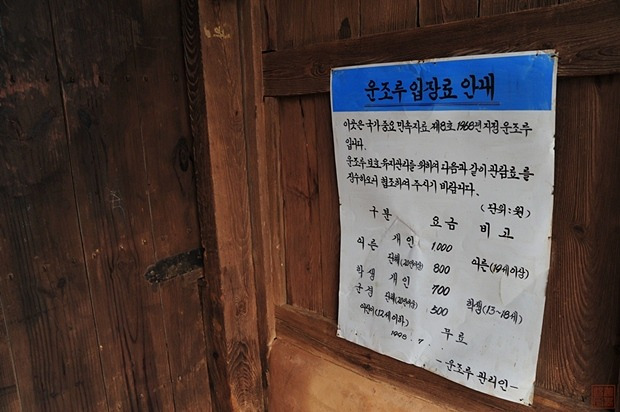 운조루 입장료 안내
이곳은 국가 중요 민속자료 제8호 1968년 지정 운조루
입니다.
운조루 보호 유지관리를 위하여 다음과 같이 관람료를
징수하오니 협조하여 주시기 바랍니다.
(단위:원)
구분 요금 비고
어른 개인 1,000 어른(19세이상)
단체(20인이상) 800
학생 개인 700 학생(13~18세)
군경 단체(20인이상) 500
어린이(12세이하) 무료
1998. 7.
- 운조루 관리인 -